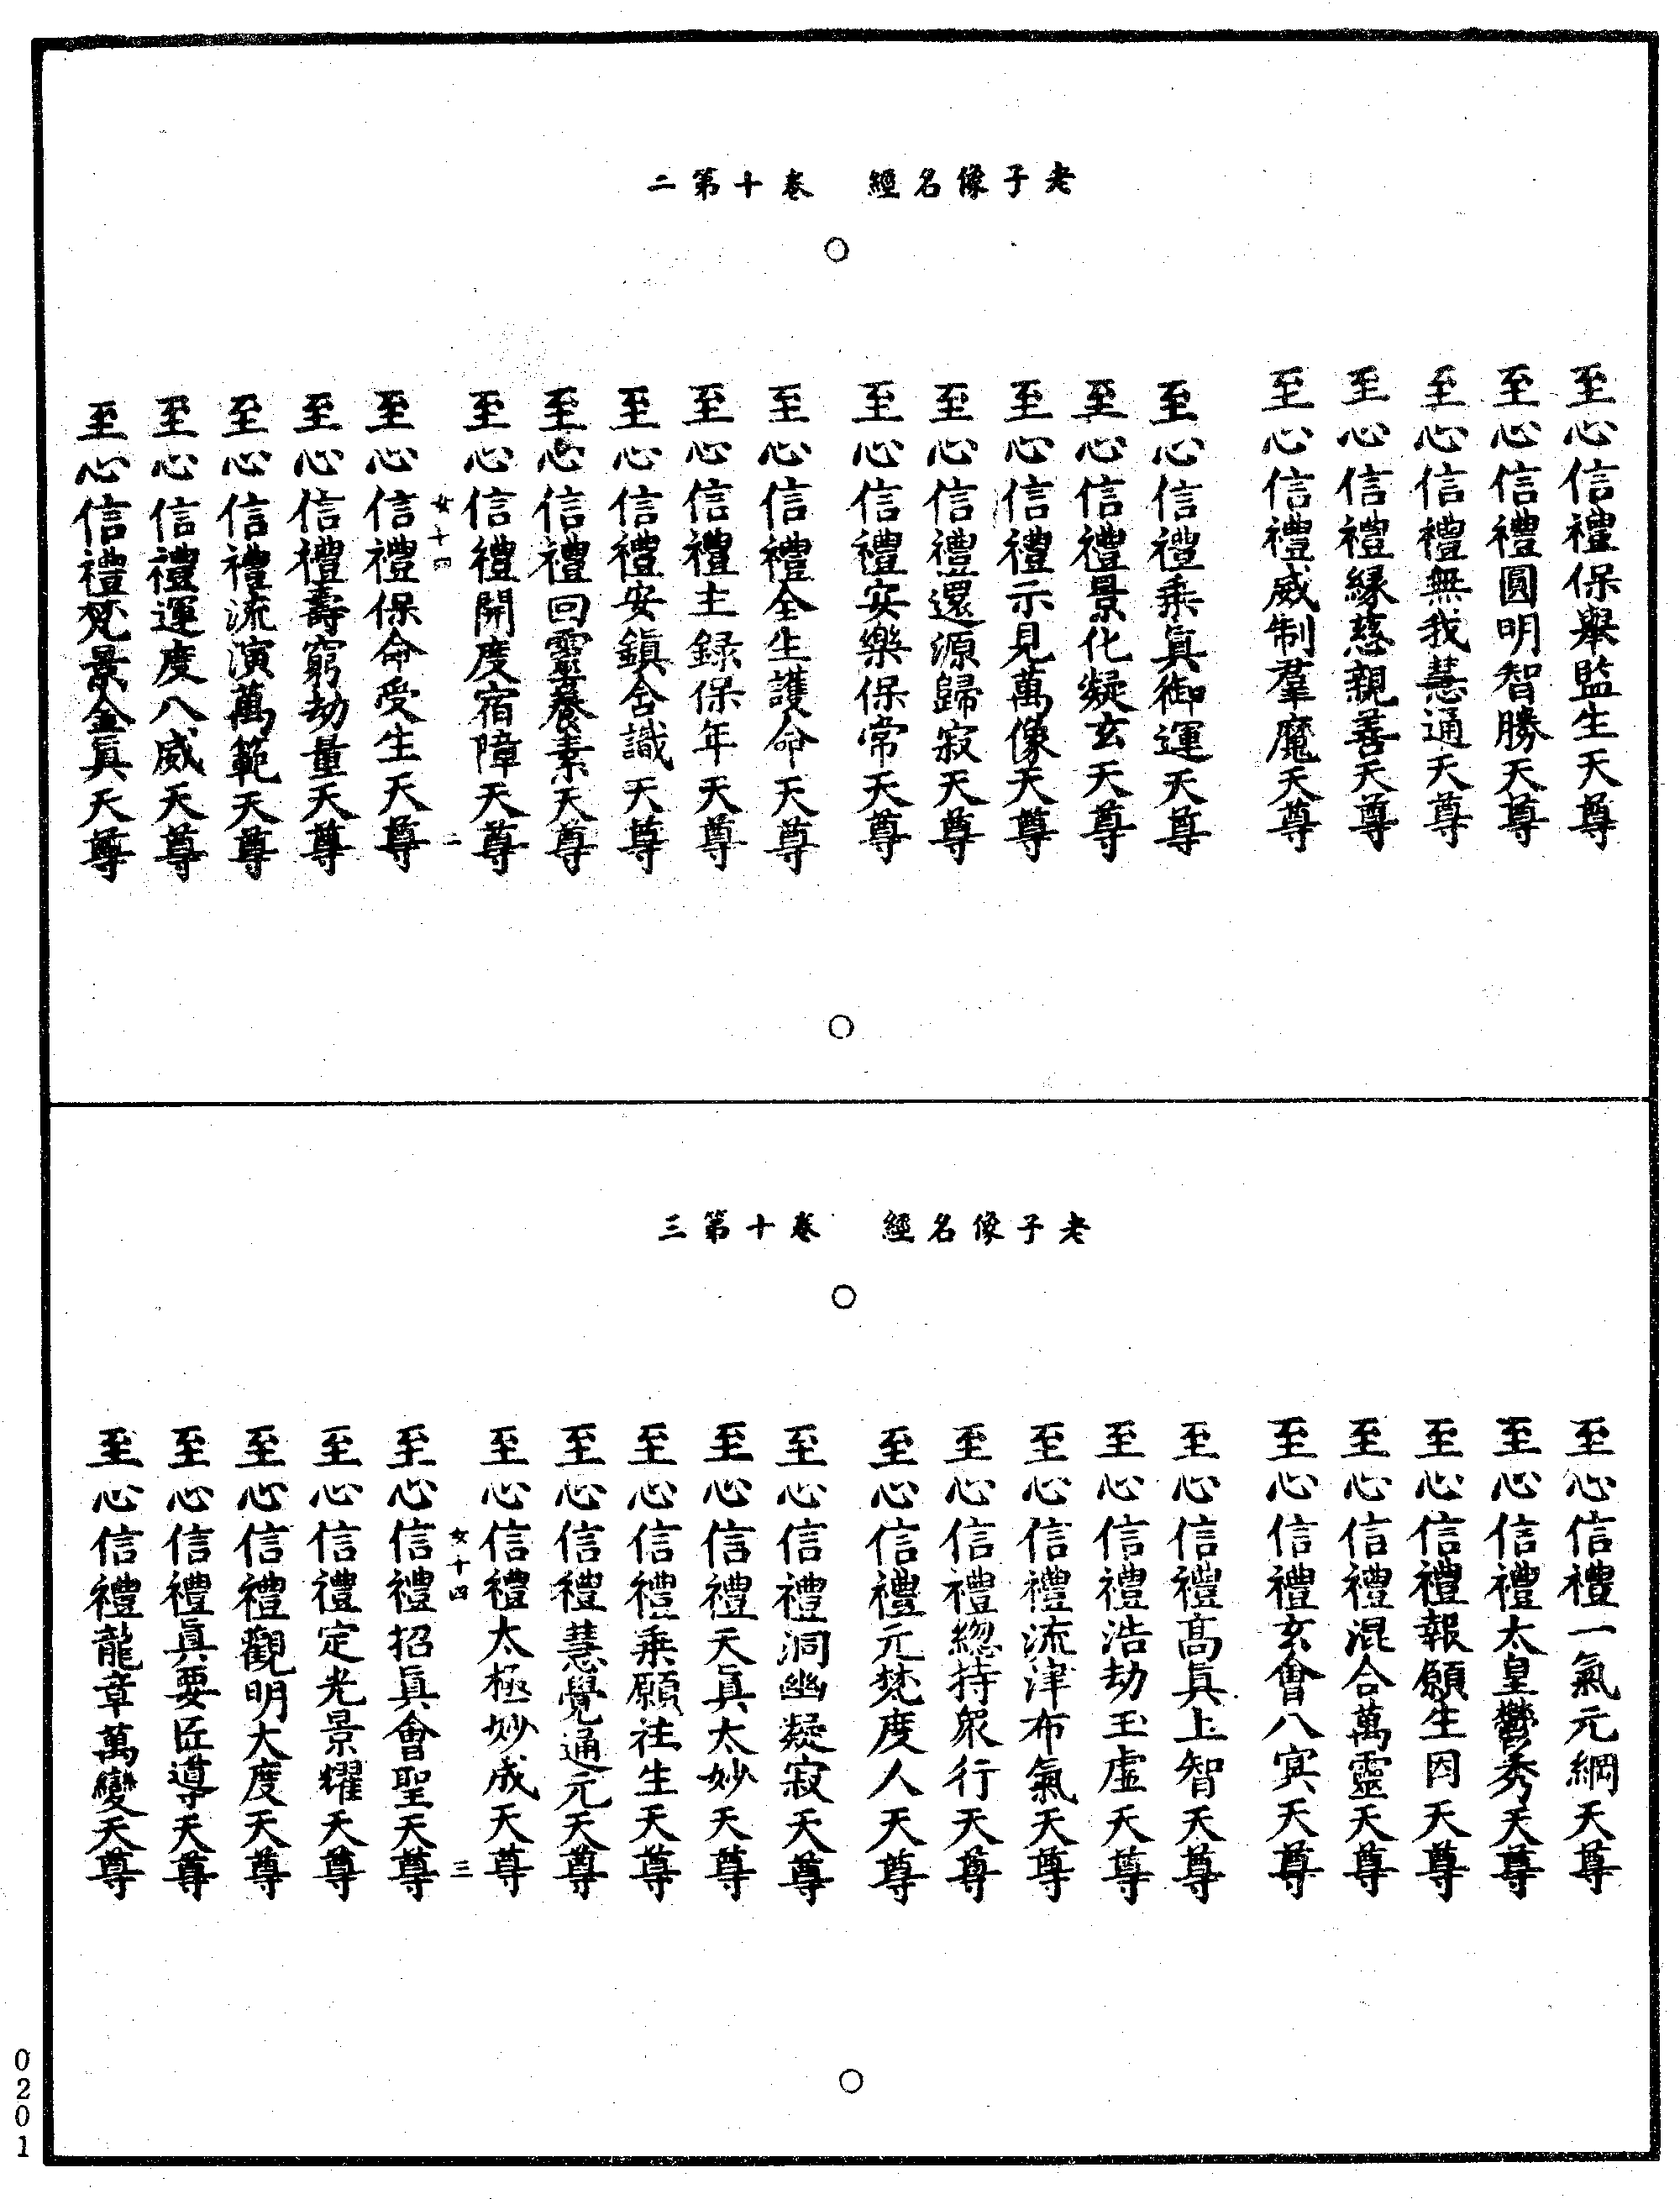 老子像名經　卷十第二
至心信禮保舉監生天尊
至心信禮圓明智勝天尊
至心信禮無我慧通天尊
至心信禮緣慈親善天尊
至心信禮威制羣魔天尊
至心信禮乘眞御運天尊
至心信禮景化凝玄天尊
至心信禮示見萬像天尊
至心信禮還源歸寂天尊
至心信禮安樂保常天尊
至心信禮全生護命天尊
至心信禮主録保年天尊
至心信禮安鎭含識天尊
至心信禮回靈養素天尊
至心信禮開度宿障天尊
女十四　二
至心信禮保命受生天尊
至心信禮壽窮劫量天尊
至心信禮流演萬範天尊
至心信禮運度八威天尊
至心信禮梵景金眞天尊
老子像名經　卷十第三
至心信禮一氣元綱天尊
至心信禮太皇鬱秀天尊
至心信禮報願生因天尊
至心信禮混合萬靈天尊
至心信禮玄會八冥天尊
至心信禮高眞上智天尊
至心信禮浩劫玉虛天尊
至心信禮流津布氣天尊
至心信禮緫持衆行天尊
至心信禮元梵度人天尊
至心信禮洞幽凝寂天尊
至心信禮天眞太妙天尊
至心信禮乘願往生天尊
至心信禮慧覺通元天尊
至心信禮太極妙成天尊
女十四　三
至心信禮招眞會聖天尊
至心信禮定光景耀天尊
至心信禮觀明大度天尊
至心信禮眞要匠導天尊
至心信禮龍章萬變天尊
0201